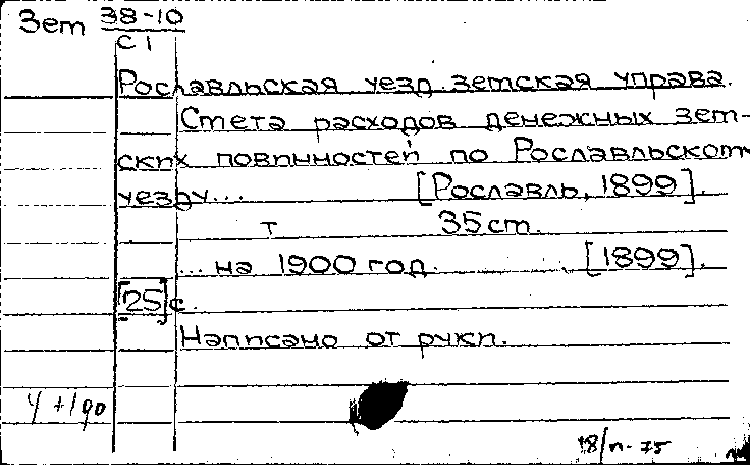 Зем 38-10
С 1
Рославльская уезд. земская управа.
Смета расходов денежных зем-
ских повинностей по Рославльскому
уезду... [Рославль, 1899].
т 35 см.
... на 1900 год. [1899].
[25] с.
Написано от руки.
18/II-75